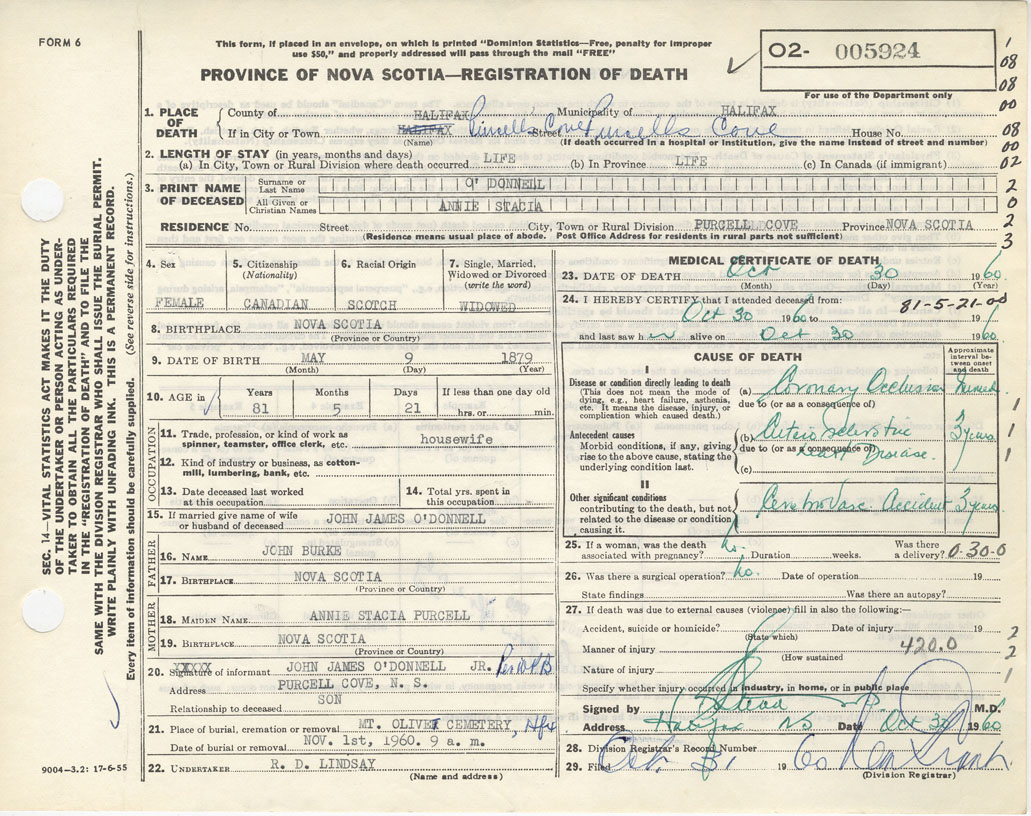 FORM 6
This form, if placed in an envelope, on which is printed "Dominion Statistics—Free, penalty for improper
use $50," and properly addressed will pass through the mail "FREE"
PROVINCE OF NOVA SCOTIA—REGISTRATION OF DEATH
O2- 005924
For use of the Department only
1
08
08
00
08
00
02
2
0
2
3
1. PLACE OF DEATH
County of HALIFAX Municipality of HALIFAX
If in City or Town HALIFAX Purcells Cove Street Purcells Cove House No.
(Name) (If death occurred in a hospital or institution, give the name instead of street and number)
2. LENGTH OF STAY (in years, months and days)
(a) In City, Town or Rural Division where death occurred LIFE (b) In Province LIFE (c) In Canada (if immigrant)
3. PRINT NAME OF DECEASED
Surname or Last Name O' DONNELL
All Given or Christian Names ANNIE STACIA
RESIDENCE No. Street City, Town or Rural Division PURCELL COVE Province NOVA SCOTIA
(Residence means usual place of abode. Post Office Address for residents in rural parts not sufficient)
4. Sex
FEMALE
5. Citizenship (Nationality)
CANADIAN
6. Racial Origin
SCOTCH
7. Single, Married, Widowed or Divorced (write the word)
WIDOWED
8. BIRTHPLACE NOVA SCOTIA
(Province or Country)
9. DATE OF BIRTH MAY 9 1879
(Month) (Day) (Year)
10. AGE in
Years Months Days If less than one day old
81 5 21 hrs. or min.
OCCUPATION
11. Trade, profession, or kind of work as spinner, teamster, office clerk, etc. housewife
12. Kind of industry or business, as cotton-mill, lumbering, bank, etc.
13. Date deceased last worked at this occupation
14. Total yrs. spent in this occupation
15. If married give name of wife or husband of deceased JOHN JAMES O'DONNELL
FATHER
16. NAME JOHN BURKE
17. BIRTHPLACE NOVA SCOTIA
(Province or Country)
MOTHER
18. MAIDEN NAME ANNIE STACIA PURCELL
19. BIRTHPLACE NOVA SCOTIA
(Province or Country)
XXXXX
20. Signature of informant JOHN JAMES O'DONNELL JR. Per
Address PURCELL COVE, N. S.
Relationship to deceased SON
21. Place of burial, cremation or removal MT. OLIVET CEMETERY, Hfx
Date of burial or removal NOV. 1st, 1960. 9 a. m.
22. UNDERTAKER R. D. LINDSAY
(Name and address)
MEDICAL CERTIFICATE OF DEATH
23. DATE OF DEATH Oct 30 1960
(Month) (Day) (Year)
24. I HEREBY CERTIFY that I attended deceased from: 81-5-21-
Oct 30 1960 to 19
and last saw h alive on Oct 30 1960
CAUSE OF DEATH
Approximate interval between onset and death
I
Disease or condition directly leading to death
(This does not mean the mode of dying, e.g., heart failure, asthenia, etc. It means the disease, injury, or complication which caused death.)
(a) Coronary Occlusion Immed
due to (or as a consequence of)
Antecedent causes
Morbid conditions, if any, giving rise to the above cause, stating the underlying condition last.
(b) Arteriosclerotic 3 years
due to (or as a consequence of)
Heart Disease.
(c)
II
Other significant conditions
contributing to the death, but not related to the disease or condition causing it.
Cerebro Vasc. Accident 3 years
1
1
1
25. If a woman, was the death associated with pregnancy? no. Duration weeks. Was there a delivery? 0-30-0
26. Was there a surgical operation? no. Date of operation 19
State findings Was there an autopsy?
27. If death was due to external causes (violence) fill in also the following:—
Accident, suicide or homicide? Date of injury 19
(State which)
Manner of injury 420.0
(How sustained
Nature of injury
Specify whether injury occurred in industry, in home, or in public place
2
2
1
Signed by M.D.
Address Halifax NS Date Oct 30 1960
28. Division Registrar's Record Number
29. Filed Oct. 31 1960
(Division Registrar)
SEC. 14—VITAL STATISTICS ACT MAKES IT THE DUTY
OF THE UNDERTAKER OR PERSON ACTING AS UNDER-
TAKER TO OBTAIN ALL THE PARTICULARS REQUIRED
IN THE "REGISTRATION OF DEATH" AND FILE THE
SAME WITH THE DIVISION REGISTRAR WHO SHALL ISSUE THE BURIAL PERMIT.
WRITE PLAINLY WITH UNFADING INK. THIS IS A PERMANENT RECORD.
Every item of information should be carefully supplied. (See reverse side for instructions.)
9004—3.2: 17-6-55